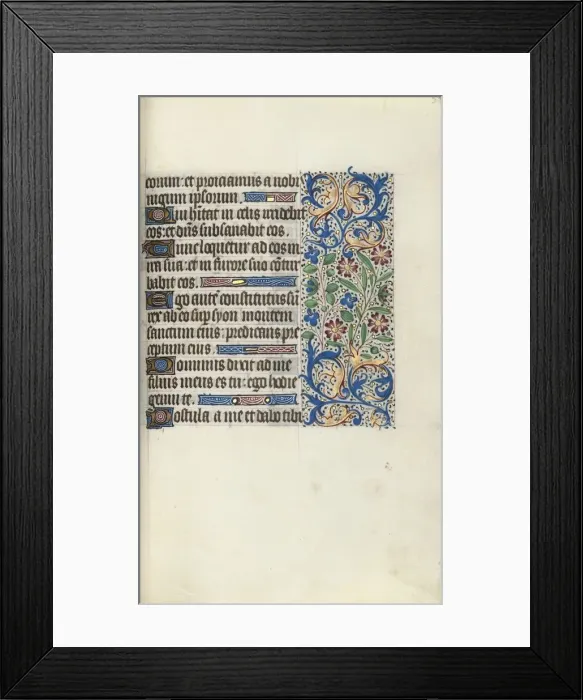 eorum: et proiciamus a nobis
iugum ipsorum.
Qui habitat in celis irridebit
eos: et dñs subsanabit eos.
Tunc loquetur ad eos in
ira sua: et in furore suo cõtur
babit eos.
Ego autẽ constitutus sũ
rex ab eo sup syon montem
sanctum eius: predicans pre
ceptum eius.
Dominus dixit ad me
filius meus es tu: ego hodie
genui te.
Postula a me et dabo tibi